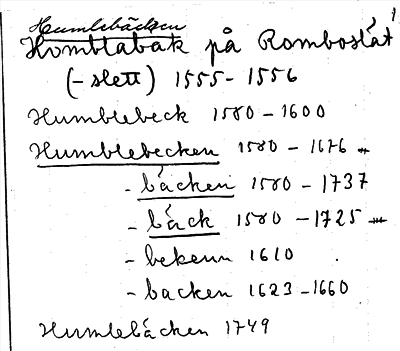 Humlebäcken
Homblabak på Romboslät
(-slett) 1555-1556
Humblebeck 1580-1600
Humblebecken 1580-1676
- bäcken 1580-1737
- bäck 1580-1725
- bekenn 1610
- backen 1623-1660
Humlebäcken 1749